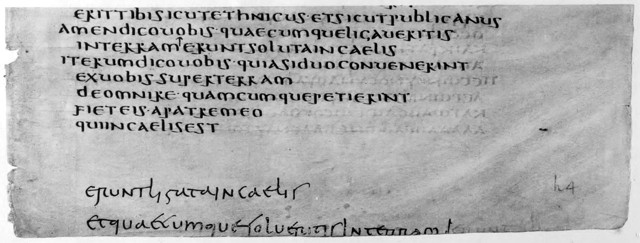 ERITTIBISICUTETHNICUS·ETSICUTPUBLICANUS
AMENDICOUOBIS·QUAECUMQUELIGAUERITIS
INTERRAM↑ERUNTSOLUTAINCAELIS
ITERUMDICOUOBIS·QUIASIDUOCONUENERINT
EXUOBISSUPERTERRAM
DEOMNIRE·QUAMCUMQUEPETIERINT
FIETEIS·APATREMEO
QUIINCAELISEST
eruntligataincaelis
etquaecumquesolueritisinterram